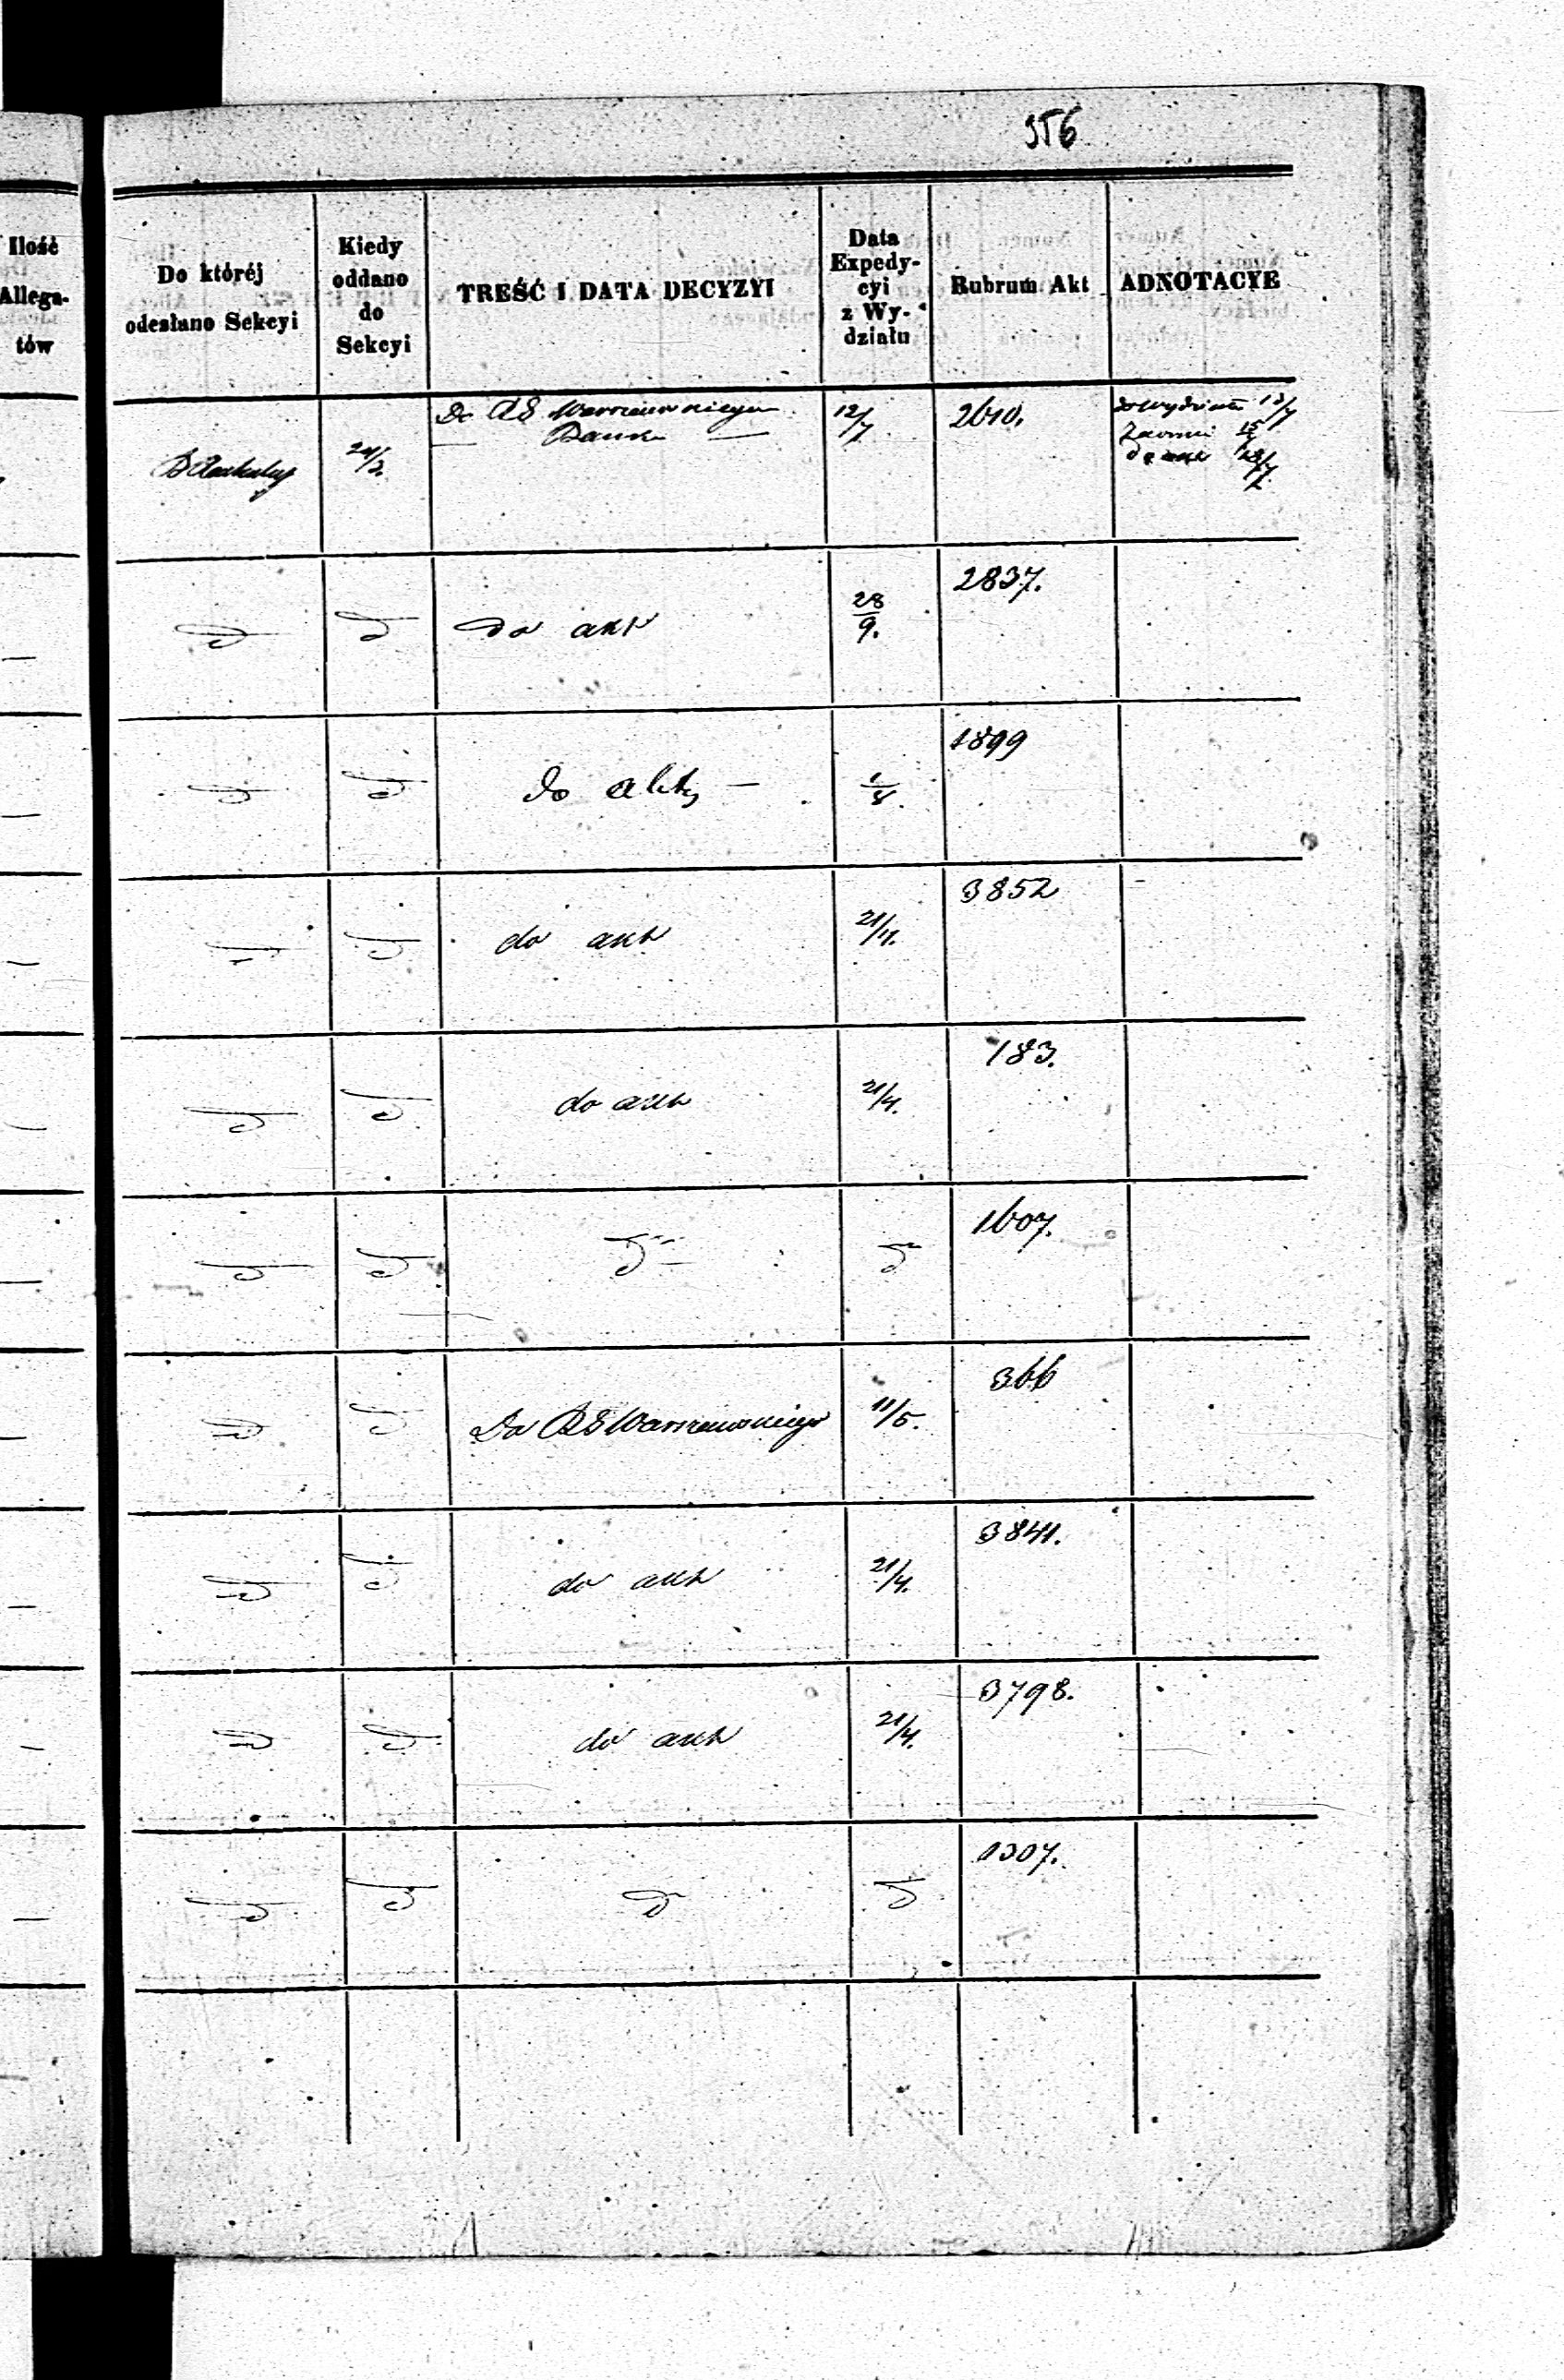 356
Ilość
Allega-
tów
Do któréj
odesłano Sekcyi
Kiedy
oddano
do
Sekcyi
TREŚĆ I DATA DECYZYI
Data
Expedy-
cyi
z Wy-
działu
Rubrum Akt
ADNOTACYE
21/3.
Do RG Warszawskiego
Banku
12/7
2610.
do Wydziału 13/7
do akt
do akt
28/9.
2837.
do akt
1/8.
1899
do akt
21/4.
3852
do akt
21/4.
183.
d
d
1607.
Do RG Warszawskiego
11/5.
366
do akt
21/4.
3841.
do akt
21/4.
3798.
d
d
1307.